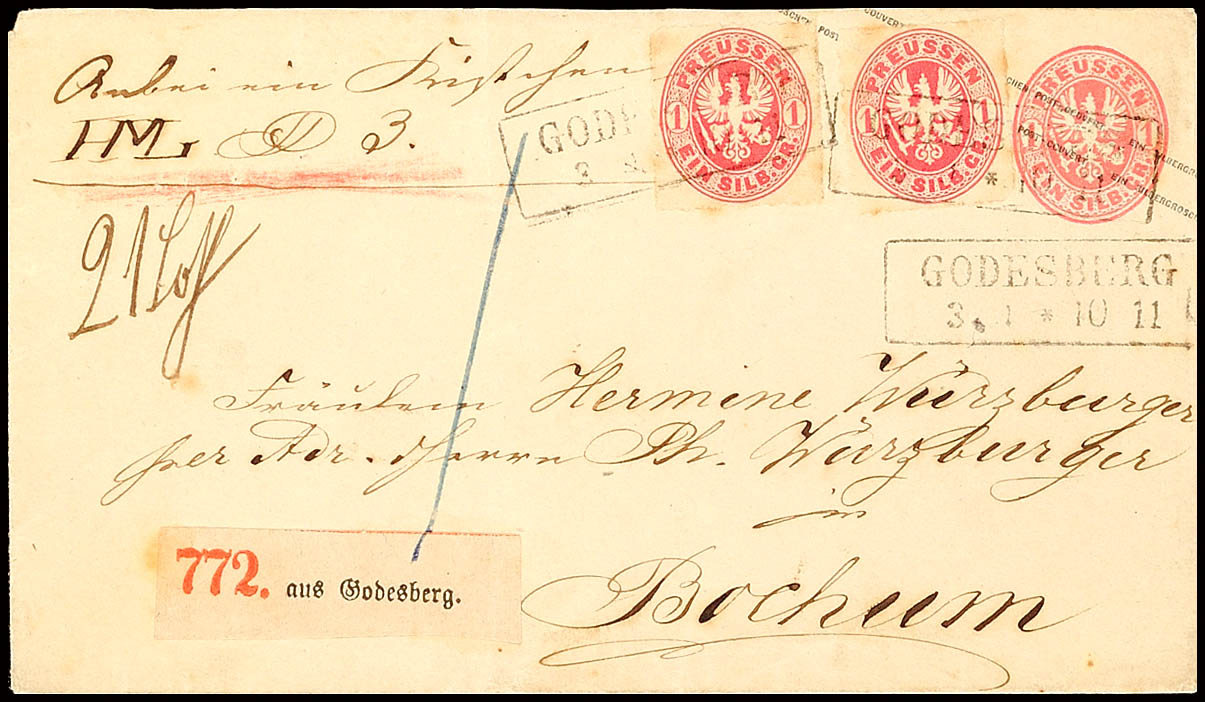 Anbei ein Kistchen
HM # 3.
21 Loth
PREUSSEN
1 1
EIN SILB.GR.
PREUSSEN
1 1
EIN SILB.GR.
PREUSSEN
1 1
EIN SILB.GR.
POST-COUVERT EIN SILBERGROSCH
GODESBERG
3. 1 * 10 11
Fräulein Hermine Würzburger
per Adr. Herrn Ph. Würzburger
in
Bochum
772. aus Godesberg.